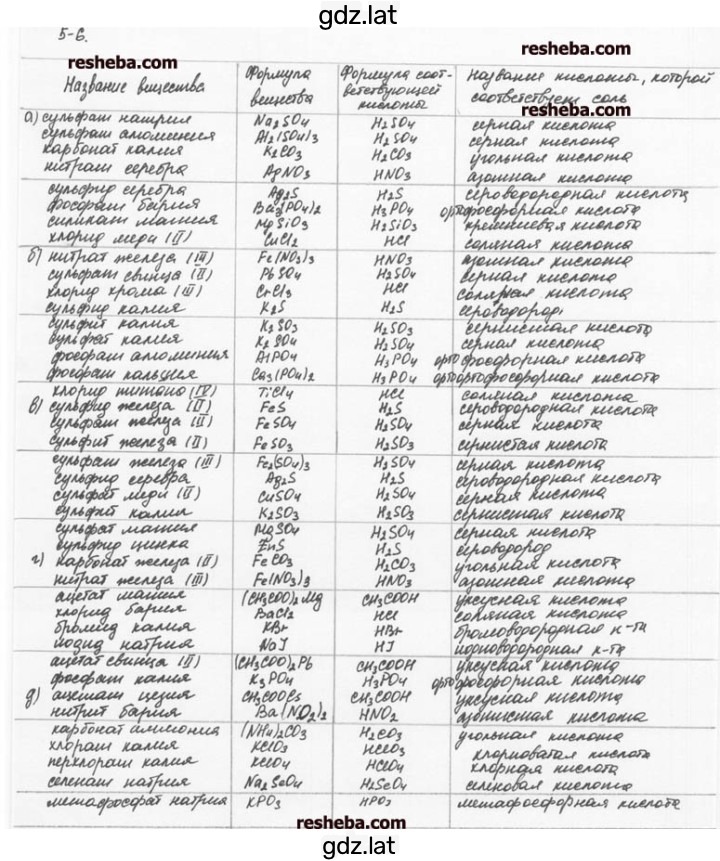 gdz.lat
5-6.
resheba.com resheba.com
Название вещества Формула вещества Формула соответствующей кислоты Название кислоты, которой соответствует соль
resheba.com
а) сульфат натрия Na2SO4 H2SO4 серная кислота
сульфат алюминия Al2(SO4)3 H2SO4 серная кислота
карбонат калия K2CO3 H2CO3 угольная кислота
нитрат серебра AgNO3 HNO3 азотная кислота
сульфид серебра Ag2S H2S сероводородная кислота
фосфат бария Ba3(PO4)2 H3PO4 ортофосфорная кислота
силикат магния MgSiO3 H2SiO3 кремниевая кислота
хлорид меди (II) CuCl2 HCl соляная кислота
б) нитрат железа (III) Fe(NO3)3 HNO3 азотная кислота
сульфат свинца (II) PbSO4 H2SO4 серная кислота
хлорид хрома (III) CrCl3 HCl соляная кислота
сульфид калия K2S H2S сероводород
сульфит калия K2SO3 H2SO3 сернистая кислота
сульфат калия K2SO4 H2SO4 серная кислота
фосфат алюминия AlPO4 H3PO4 ортофосфорная кислота
фосфат кальция Ca3(PO4)2 H3PO4 ортоортофосфорная кислота
хлорид титана (IV) TiCl4 HCl соляная кислота
в) сульфид железа (II) FeS H2S сероводородная кислота
сульфат железа (II) FeSO4 H2SO4 серная кислота
сульфит железа (II) FeSO3 H2SO3 сернистая кислота
сульфат железа (III) Fe2(SO4)3 H2SO4 серная кислота
сульфид серебра Ag2S H2S сероводородная кислота
сульфат меди (II) CuSO4 H2SO4 серная кислота
сульфит калия K2SO3 H2SO3 сернистая кислота
сульфат магния MgSO4 H2SO4 серная кислота
сульфид цинка ZnS H2S сероводород
г) карбонат железа (II) FeCO3 H2CO3 угольная кислота
нитрат железа (III) Fe(NO3)3 HNO3 азотная кислота
ацетат магния (CH3COO)2Mg CH3COOH уксусная кислота
хлорид бария BaCl2 HCl соляная кислота
бромид калия KBr HBr бромоводородная к-та
иодид натрия NaJ HJ иодоводородная к-та
ацетат свинца (II) (CH3COO)2Pb CH3COOH уксусная кислота
фосфат калия K3PO4 H3PO4 ортофосфорная кислота
д) ацетат цезия CH3COOCs CH3COOH уксусная кислота
нитрит бария Ba(NO2)2 HNO2 азотистая кислота
карбонат аммония (NH4)2CO3 H2CO3 угольная кислота
хлорат калия KClO3 HClO3 хлорноватая кислота
перхлорат калия KClO4 HClO4 хлорная кислота
селенат натрия Na2SeO4 H2SeO4 селеновая кислота
метафосфат натрия KPO3 HPO3 метафосфорная кислота
resheba.com
gdz.lat